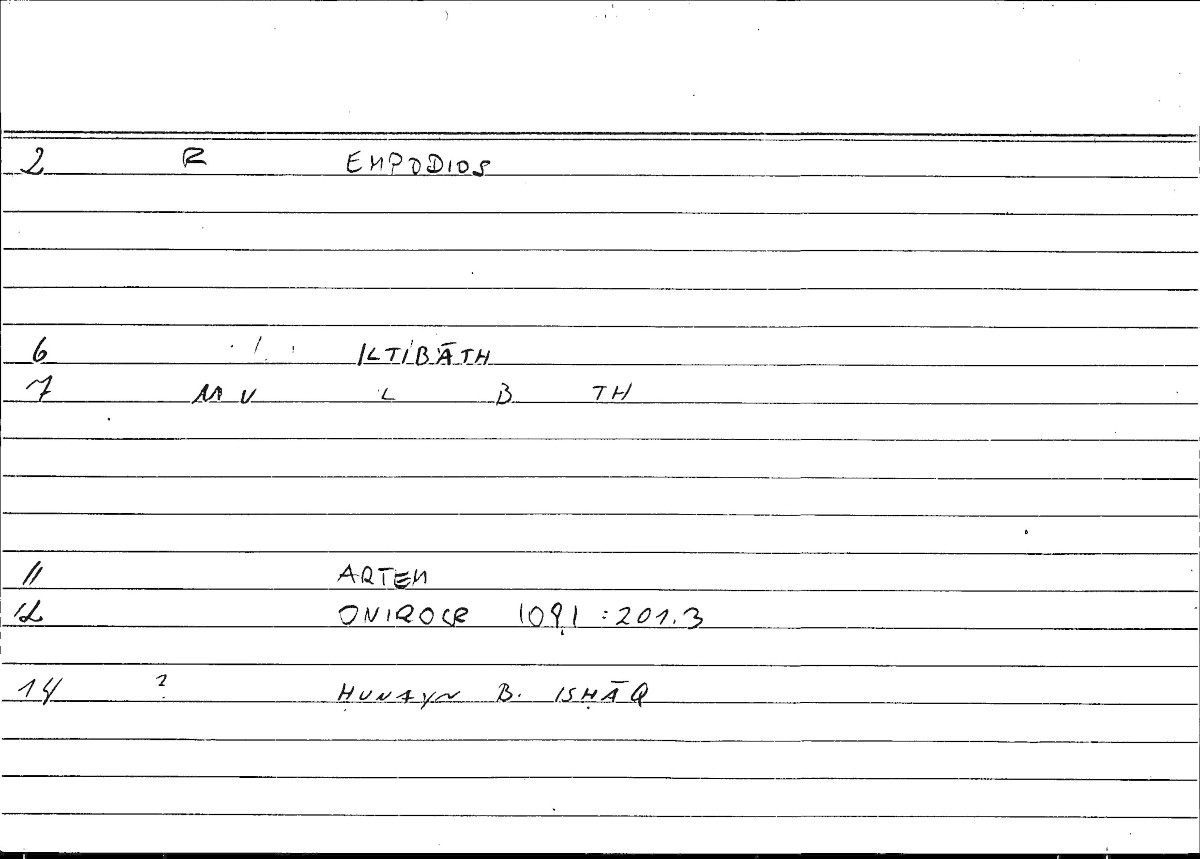 2 R EMPODIOS
6 ILTIBĀTH
7 M V L B TH
11 ARTEM
12 ONIROCR 1091 : 201.3
14 ? ḤUNAYN B. ISḤĀQ